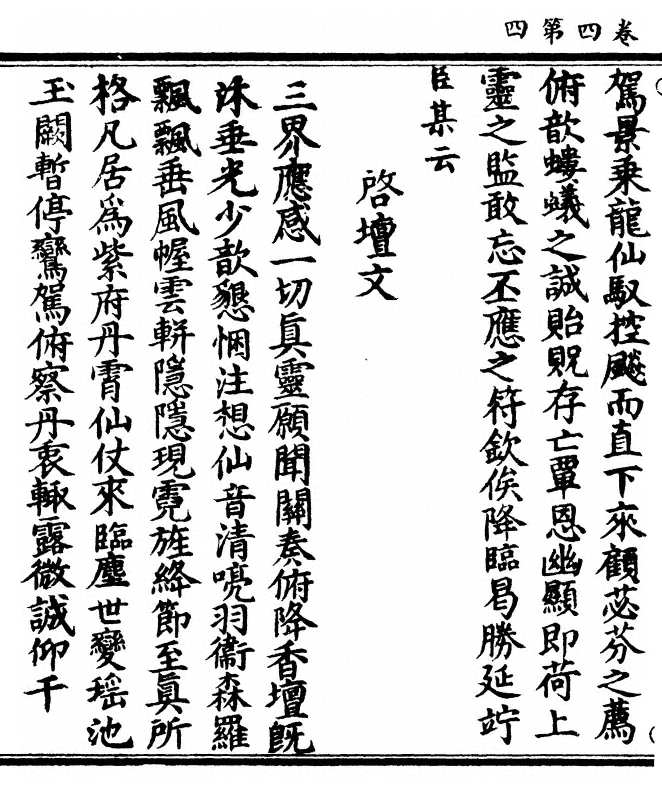 卷四第四
駕景乗龍仙馭控飈而直下來顧苾芬之薦
俯歆螻蟻之誠貽貺存亡覃恩幽顯即荷上
靈之監敢忘丕應之符欽俟降臨曷勝延竚
臣某云
啓壇文
三界應感一切眞靈願聞關奏俯降香壇旣
沐垂光少歆懇悃注想仙音清喨羽衞森羅
飄飄垂風幄雲軿隱隱現霓旌絳節至眞所
格凡居爲紫府丹霄仙仗來臨塵世變瑶池
玉闕暫停鸞駕俯察丹衷輙露微誠仰干